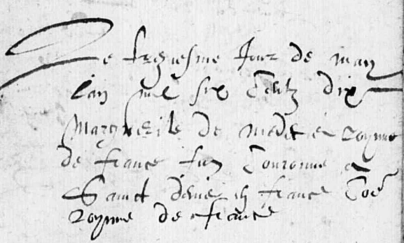 Le trezesme Jour de may
Lan mil six Centz dix
Marguerite de royne
de france fut Couronne a
Sainct denis france Coe
royne de france